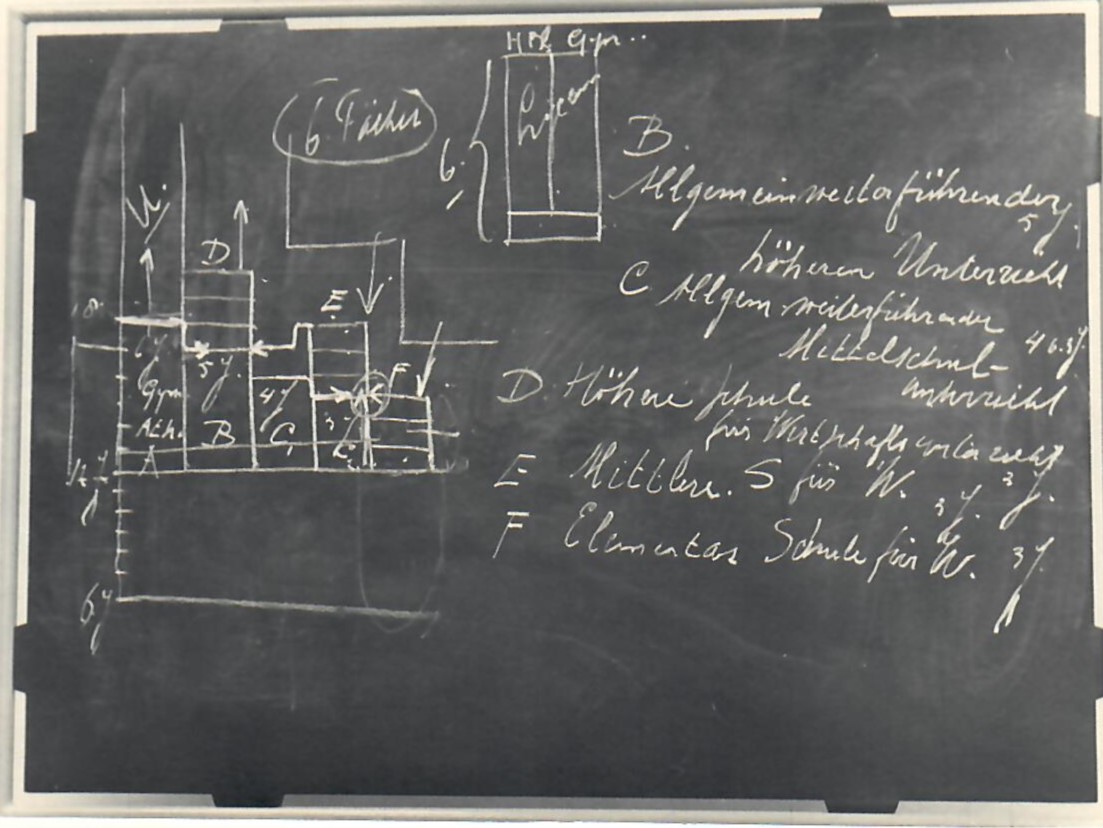 6. Fächer
Hbs. Gym..
Lyceum
6.
B.
Allgemein weiterführender
5 j.
höheren Unterricht
C Allgem. weiterführender
Mittelschul- 4 o. 3 j.
unterricht
D. Höhere Schule
für Wirtschaftsunterricht
3 j.
E Mittlere. S für W. 3 j.
F Elementar Schule für W. 3 j.
U.
D
E
F
18.
6 j.
5 j.
4 j.
3 j.
Gym.
Ath.
A
B
C
12 j.
6 j